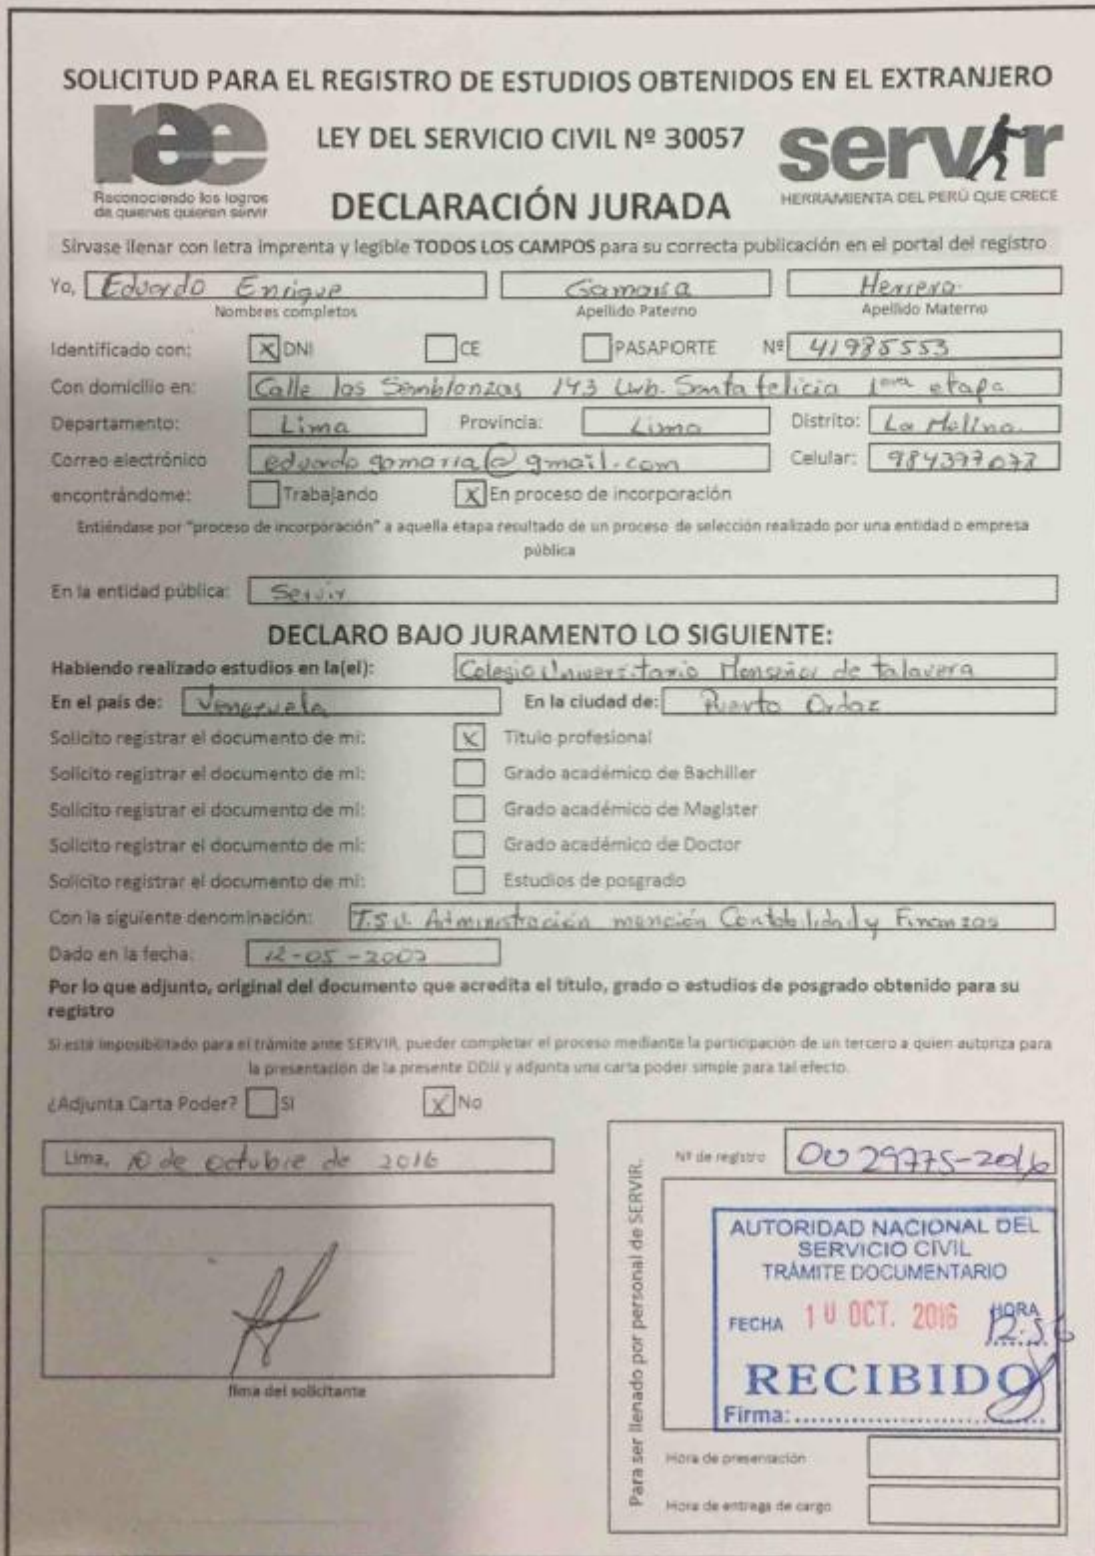 SOLICITUD PARA EL REGISTRO DE ESTUDIOS OBTENIDOS EN EL EXTRANJERO
ree
Reconociendo los logros
de quienes quieren servir
LEY DEL SERVICIO CIVIL Nº 30057
servir
HERRAMIENTA DEL PERÚ QUE CRECE
DECLARACIÓN JURADA
Sírvase llenar con letra imprenta y legible TODOS LOS CAMPOS para su correcta publicación en el portal del registro
Yo, Eduardo Enrique Gamarra Herrera
Nombres completos Apellido Paterno Apellido Materno
Identificado con: X DNI CE PASAPORTE Nº 41985553
Con domicilio en: Calle las Semblanzas 143 Urb. Santa felicia 1era etapa
Departamento: Lima Provincia: Lima Distrito: La Molina
Correo electrónico eduardo.gamarra@gmail.com Celular:
encontrándome: Trabajando X En proceso de incorporación
Entiéndase por "proceso de incorporación" a aquella etapa resultado de un proceso de selección realizado por una entidad o empresa
pública
En la entidad pública: Servir
DECLARO BAJO JURAMENTO LO SIGUIENTE:
Habiendo realizado estudios en la(el): Colegio Universitario Monseñor de talavera
En el país de: Venezuela En la ciudad de: Puerto Ordaz
Solicito registrar el documento de mi: X Título profesional
Solicito registrar el documento de mi: Grado académico de Bachiller
Solicito registrar el documento de mi: Grado académico de Magister
Solicito registrar el documento de mi: Grado académico de Doctor
Solicito registrar el documento de mi: Estudios de posgrado
Con la siguiente denominación: T.S.U. Administración mención Contabilidad y Finanzas
Dado en la fecha: 12-05-2007
Por lo que adjunto, original del documento que acredita el título, grado o estudios de posgrado obtenido para su
registro
Si está imposibilitado para el trámite ante SERVIR, pueder completar el proceso mediante la participación de un tercero a quien autoriza para
la presentación de la presente DDJJ y adjunta una carta poder simple para tal efecto.
¿Adjunta Carta Poder? SI X No
Lima, 10 de octubre de 2016
firma del solicitante
Para ser llenado por personal de SERVIR.
Nº de registro 0029775-2016
AUTORIDAD NACIONAL DEL
SERVICIO CIVIL
TRÁMITE DOCUMENTARIO
FECHA 10 OCT. 2016 HORA 12:56
RECIBIDO
Firma:
Hora de presentación
Hora de entrega de cargo